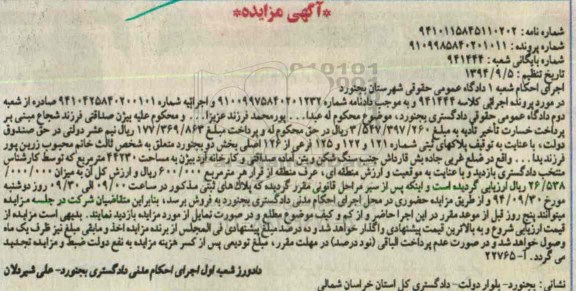 *آگهی مزایده*
شماره نامه : ۹۴۱۰۱۱۵۸۴۵۱۱۰۲۰۲
شماره پرونده : ۹۱۰۹۹۸۵۸۴۰۲۰۱۰۱۱
شماره بایگانی شعبه : ۹۴۱۴۴۴
تاریخ تنظیم : ۱۳۹۴/۹/۵
اجرای احکام شعبه ۱ دادگاه عمومی حقوقی شهرستان بجنورد
در مورد پرونده اجرائی کلاسه ۹۴۱۴۴۴ و به موجب دادنامه شماره ۹۱۰۰۹۹۷۵۸۴۰۲۰۱۲۳۲ و اجرائیه شماره ۹۴۱۰۴۲۵۸۴۰۲۰۰۱۰۱ صادره از شعبه
دوم دادگاه عمومی حقوقی دادگستری بجنورد، موضوع محکوم له عبدا... پورمحمد فرزند عزیزا... و محکوم علیه بیژن صداقتی فرزند شجاع مبنی بر
پرداخت خسارت تأخیر تأدیه به مبلغ ۳/۵۴۷/۳۹۷/۲۶۰ ریال در حق محکوم له و پرداخت مبلغ ۱۷۷/۳۶۹/۸۶۳ ریال نیم عشر دولتی در حق صندوق
دولت، با عنایت به توقیف پلاکهای ثبتی شماره ۱۲۱ و ۱۲۲ و ۱۲۵ فرعی از ۱۲۶ اصلی بخش دو بجنورد متعلق به شخص ثالث خانم محبوب زرین پور
فرزند یدا... و واقع در ضلع غربی جاده بش قارداش جنب سنگ شکن وبتن آماده صداقتی و کارخانه آرد بیژن به مساحت ۴۴۲۳۰ مترمربع که توسط کارشناس
منتخب دادگستری بازدید و با عنایت به موقعیت و ارزش منطقه ای، عرصه منطقه از قرار هر مترمربع ۶۰۰/۰۰۰ ریال و ارزش کل آن به میزان
۲۶/۵۳۸/۰۰۰/۰۰۰ ریال ارزیابی گردیده است و اینکه پس از سیر مراحل قانونی مقرر گردیده که پلاک های ثبتی مذکور در ساعت ۰۹/۰۰ الی ۰۹/۳۰ روز دوشنبه
مورخ ۹۴/۰۹/۳۰ و از طریق مزایده حضوری در محل اجرای احکام مدنی دادگستری بجنورد به فروش برسد، بنابراین متقاضیان شرکت در جلسه مزایده
میتوانند پنج روز قبل از موعد مقرر در این اجرا حاضر و از کم و کیف موضوع مطلع و در صورت تمایل از مورد مزایده بازدید نمایند. بدیهی است مزایده از
قیمت ارزیابی شروع و به بالاترین قیمت پیشنهادی واگذار خواهد شد و ده درصد مبلغ پیشنهادی فی المجلس از برنده مزایده اخذ و مابقی مبلغ نیز ظرف یک ماه
وصول خواهد شد و در صورت عدم پرداخت الباقی (نود درصد) در مهلت مقرر، مبلغ تودیعی پس از کسر هزینه مزایده به نفع دولت ضبط و مزایده تجدید
می گردد. آ-۲۲۷۶۵
دادورز شعبه اول اجرای احکام مدنی دادگستری بجنورد- علی شیردلان
نشانی : بجنورد- بلوار دولت- دادگستری کل استان خراسان شمالی